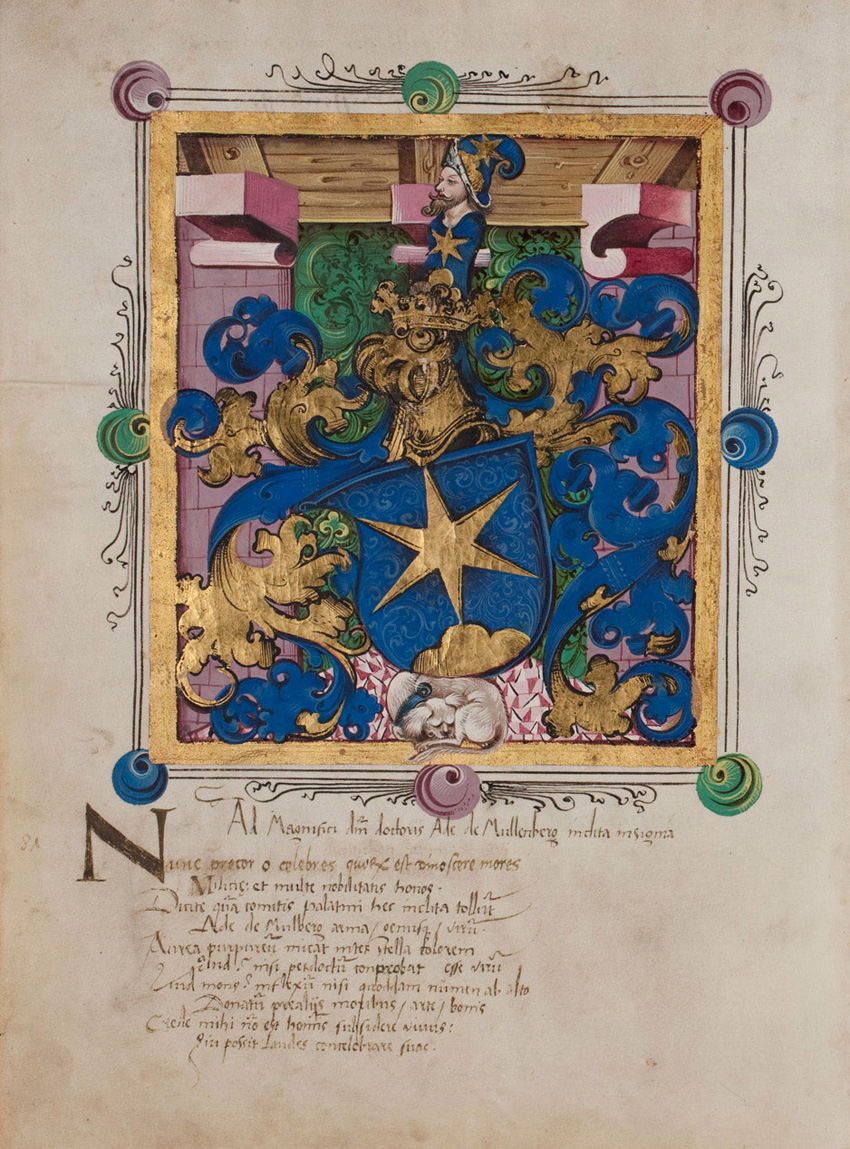 Ad Magnifici dñi doctoris Ade de Mullenberg inclita insignia
Nunc precor o celebres quorx est dinoscere mores
Milicię: et multe nobilitatis honos.
Dicite qũa comitis palatini hec inclita tollũt
Ade de Mulberg arma / genusq / virũ.
Aurea purpureũ micat inter stella colorem
Quid? nisi perdoctũ comprobat esse virũ
Quid mons? inflexũ nisi quoddam numen ab alto
Donatũ moribus / arte / bonis
Crede mihi nõ est hominis subsidere vivus:
Qui possit laudes concelebrare suas.